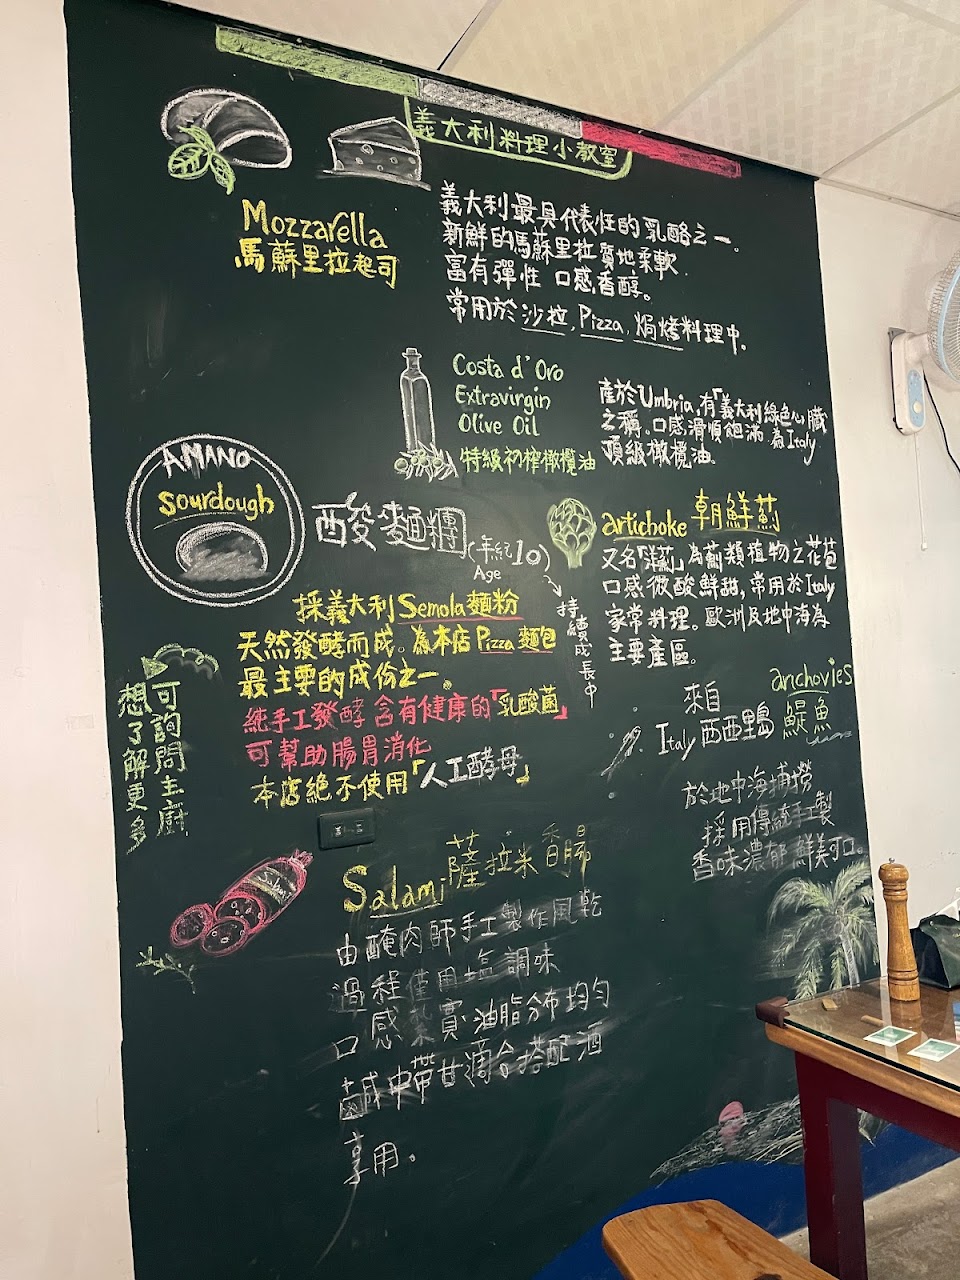 義大利料理小教室
Mozzarella
馬蘇里拉起司
義大利最具代表性的乳酪之一。
新鮮的馬蘇里拉質地柔軟
富有彈性 口感香醇。
常用於沙拉,Pizza,焗烤料理中。
Costa d'Oro
Extravirgin
Olive Oil
特級初榨橄欖油
產於Umbria,有「義大利綠色心臟
之稱。口感滑順飽滿 為Italy
頂級橄欖油。
AMANO
sourdough
酸麵糰(年紀10)
Age
持續成長中
採義大利Semola麵粉
天然發酵而成。為本店Pizza麵包
最主要的成份之一。
純手工發酵含有健康的「乳酸菌」
可幫助腸胃消化
本店絕不使用「人工酵母」
可詢問主廚
想了解更多
artichoke 朝鮮薊
又名「洋薊」為薊類植物之花苞
口感微酸鮮甜,常用於Italy
家常料理。歐洲及地中海為
主要產區。
anchovies
鯷魚
來自
Italy西西里島
於地中海捕撈
採用傳統手工製
香味濃郁 鮮美可口。
Salami薩拉米香腸
由醃肉師手工製作風乾
過程僅用鹽調味
口感紮實 油脂分布均勻
鹹中帶甘適合搭配酒
享用。